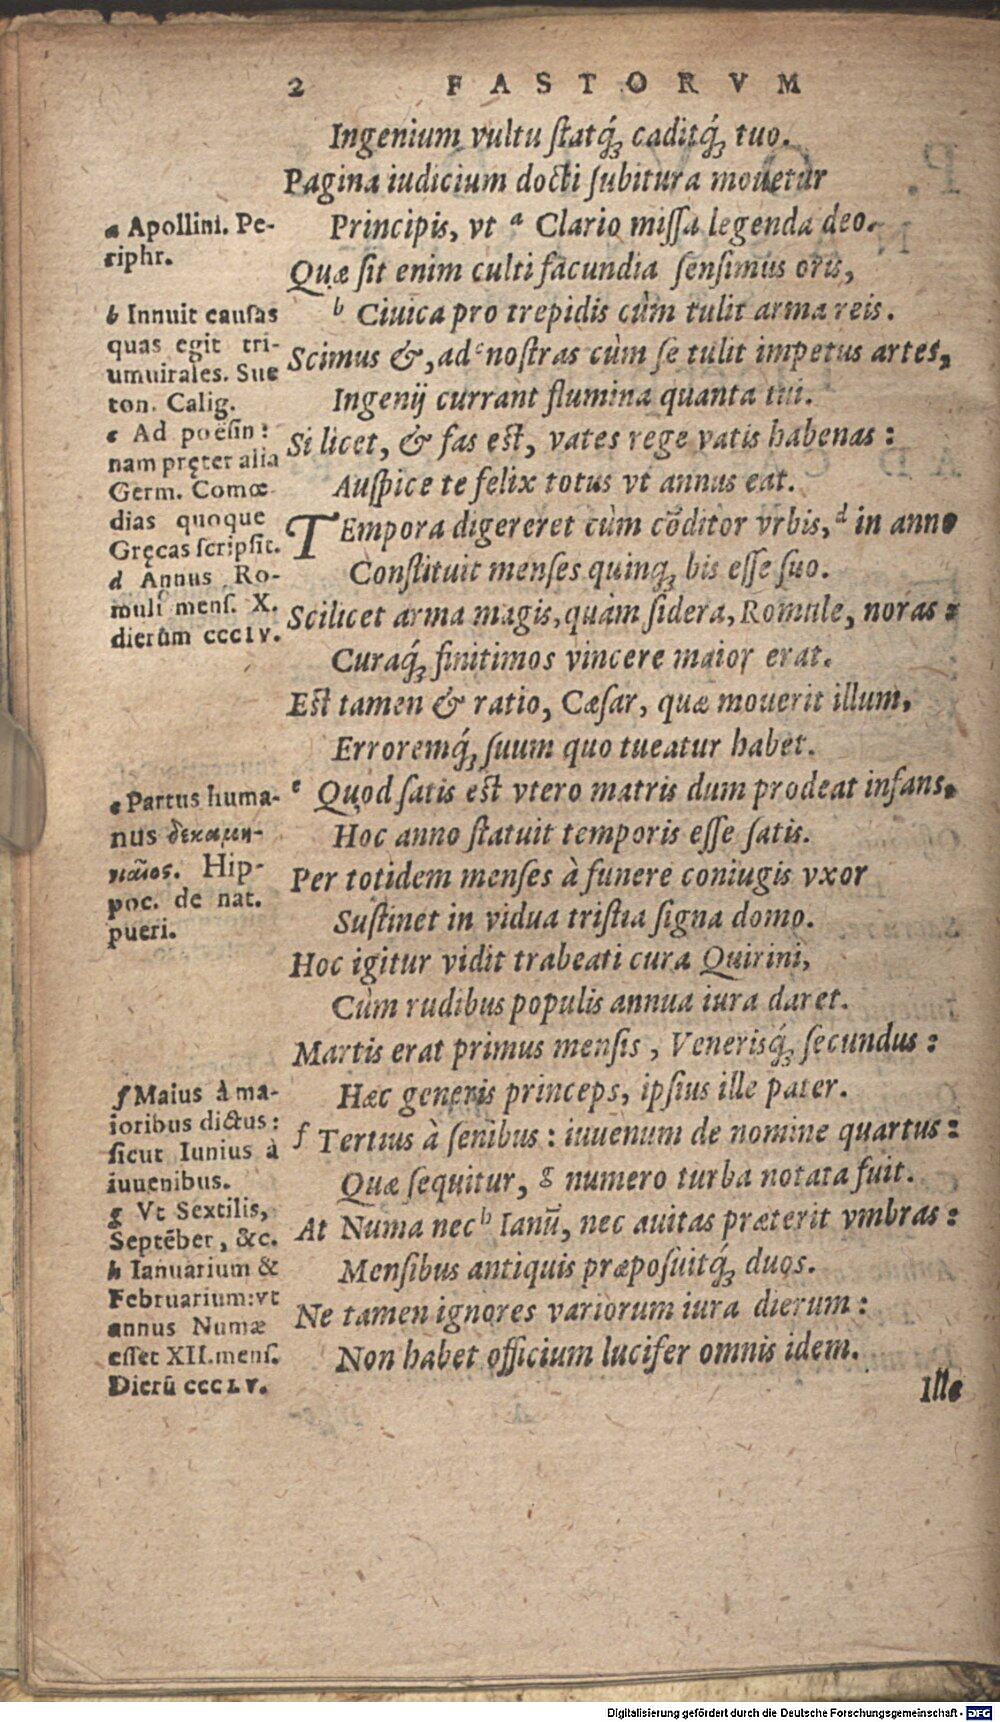 2 FASTORVM
Ingenium vultu ſtatq́; caditq́; tuo.
Pagina iudicium docti ſubitura mouetur
Principis, vt ª Clario miſſa legenda deo.
Quæ ſit enim culti facundia ſenſimus oris,
b Ciuica pro trepidis cùm tulit arma reis.
Scimus &, ad c noſtras cùm ſe tulit impetus artes,
Ingenij currant flumina quanta tui.
Si licet, & fas eſt, vates rege vatis habenas:
Auſpice te felix totus vt annus eat.
TEmpora digereret cùm cōditor vrbis, d in anno
Conſtituit menſes quinq; bis eſſe ſuo.
Scilicet arma magis, quàm ſidera, Romule, noras:
Curaq́; finitimos vincere maior erat.
Eſt tamen & ratio, Cæſar, quæ mouerit illum,
Erroremq́; ſuum quo tueatur habet.
e Quod ſatis eſt vtero matris dum prodeat infans,
Hoc anno ſtatuit temporis eſſe ſatis.
Per totidem menſes à funere coniugis vxor
Suſtinet in vidua triſtia ſigna domo.
Hoc igitur vidit trabeati cura Quirini,
Cùm rudibus populis annua iura daret.
Martis erat primus menſis, Venerisq́; ſecundus:
Hæc generis princeps, ipſius ille pater.
f Tertius à ſenibus: iuuenum de nomine quartus:
Quæ ſequitur, g numero turba notata fuit.
At Numa nec h Ianū, nec auitas præterit vmbras:
Menſibus antiquis præpoſuitq́; duos.
Ne tamen ignores variorum iura dierum:
Non habet officium lucifer omnis idem.
Ille
a Apollini. Pe-
riphr.
b Innuit cauſas
quas egit tri-
umuirales. Sue
ton. Calig.
c Ad poëſin:
nam pręter alia
Germ. Comœ
dias quoque
Gręcas ſcripſit.
d Annus Ro-
muli menſ. X.
dierum cccIV.
e Partus huma-
nus δεκαμη-
νιαῖος. Hip-
poc. de nat.
pueri.
f Maius à ma-
ioribus dictus:
ſicut Iunius à
iuuenibus.
g Vt Sextilis,
Septēber, &c.
h Ianuarium &
Februarium: vt
annus Numæ
eſſet XII. menſ.
Dierū cccLV.
Digitalisierung gefördert durch die Deutsche Forschungsgemeinschaft - DFG